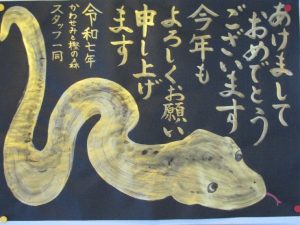 あけまして
おめでとう
ございます
今年も
よろしくお願い
申し上げ
ます
令和七年
かわせみと樫の森
スタッフ一同